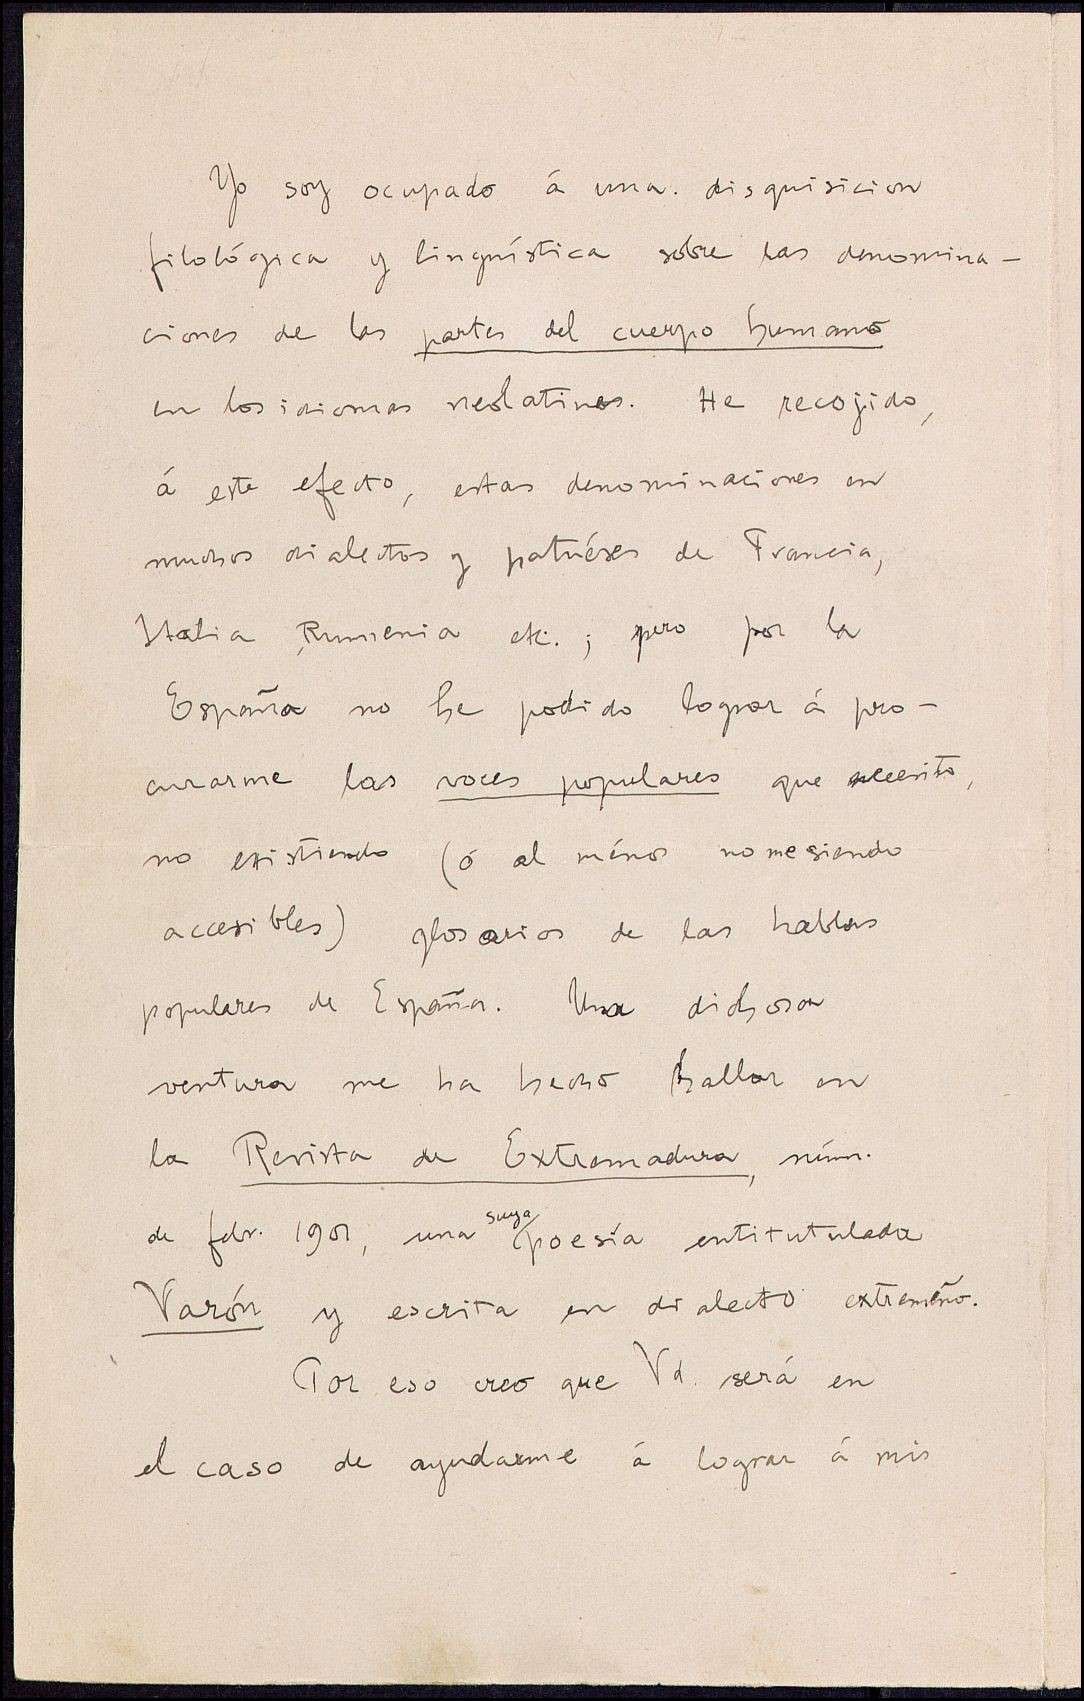 Yo soy ocupado á una. disquisicion
filológica y lingúistica sobre las denomina-
ciones de las partes del cuerpo humano
en los idiomas neolatinos. He recojido,
á este efecto, estas denominaciones en
muchos dialectos y patuéses de Francia,
Italia, Rumenia etc.; pero por la
España no he podido lograr á pro-
curarme las voces populares que necesito,
no existiendo (ó al ménos no me siendo
accesibles) glosarios de las hablas
populares de España. Una dichosa
ventura me ha hecho hallar en
la Revista de Extremadura, núm.
de febr. 1901, una suya poesía entitutulada
Varón y escrita en dialecto extremeño.
Por eso creo que Vd. será en
el caso de ayudarme á lograr á mis